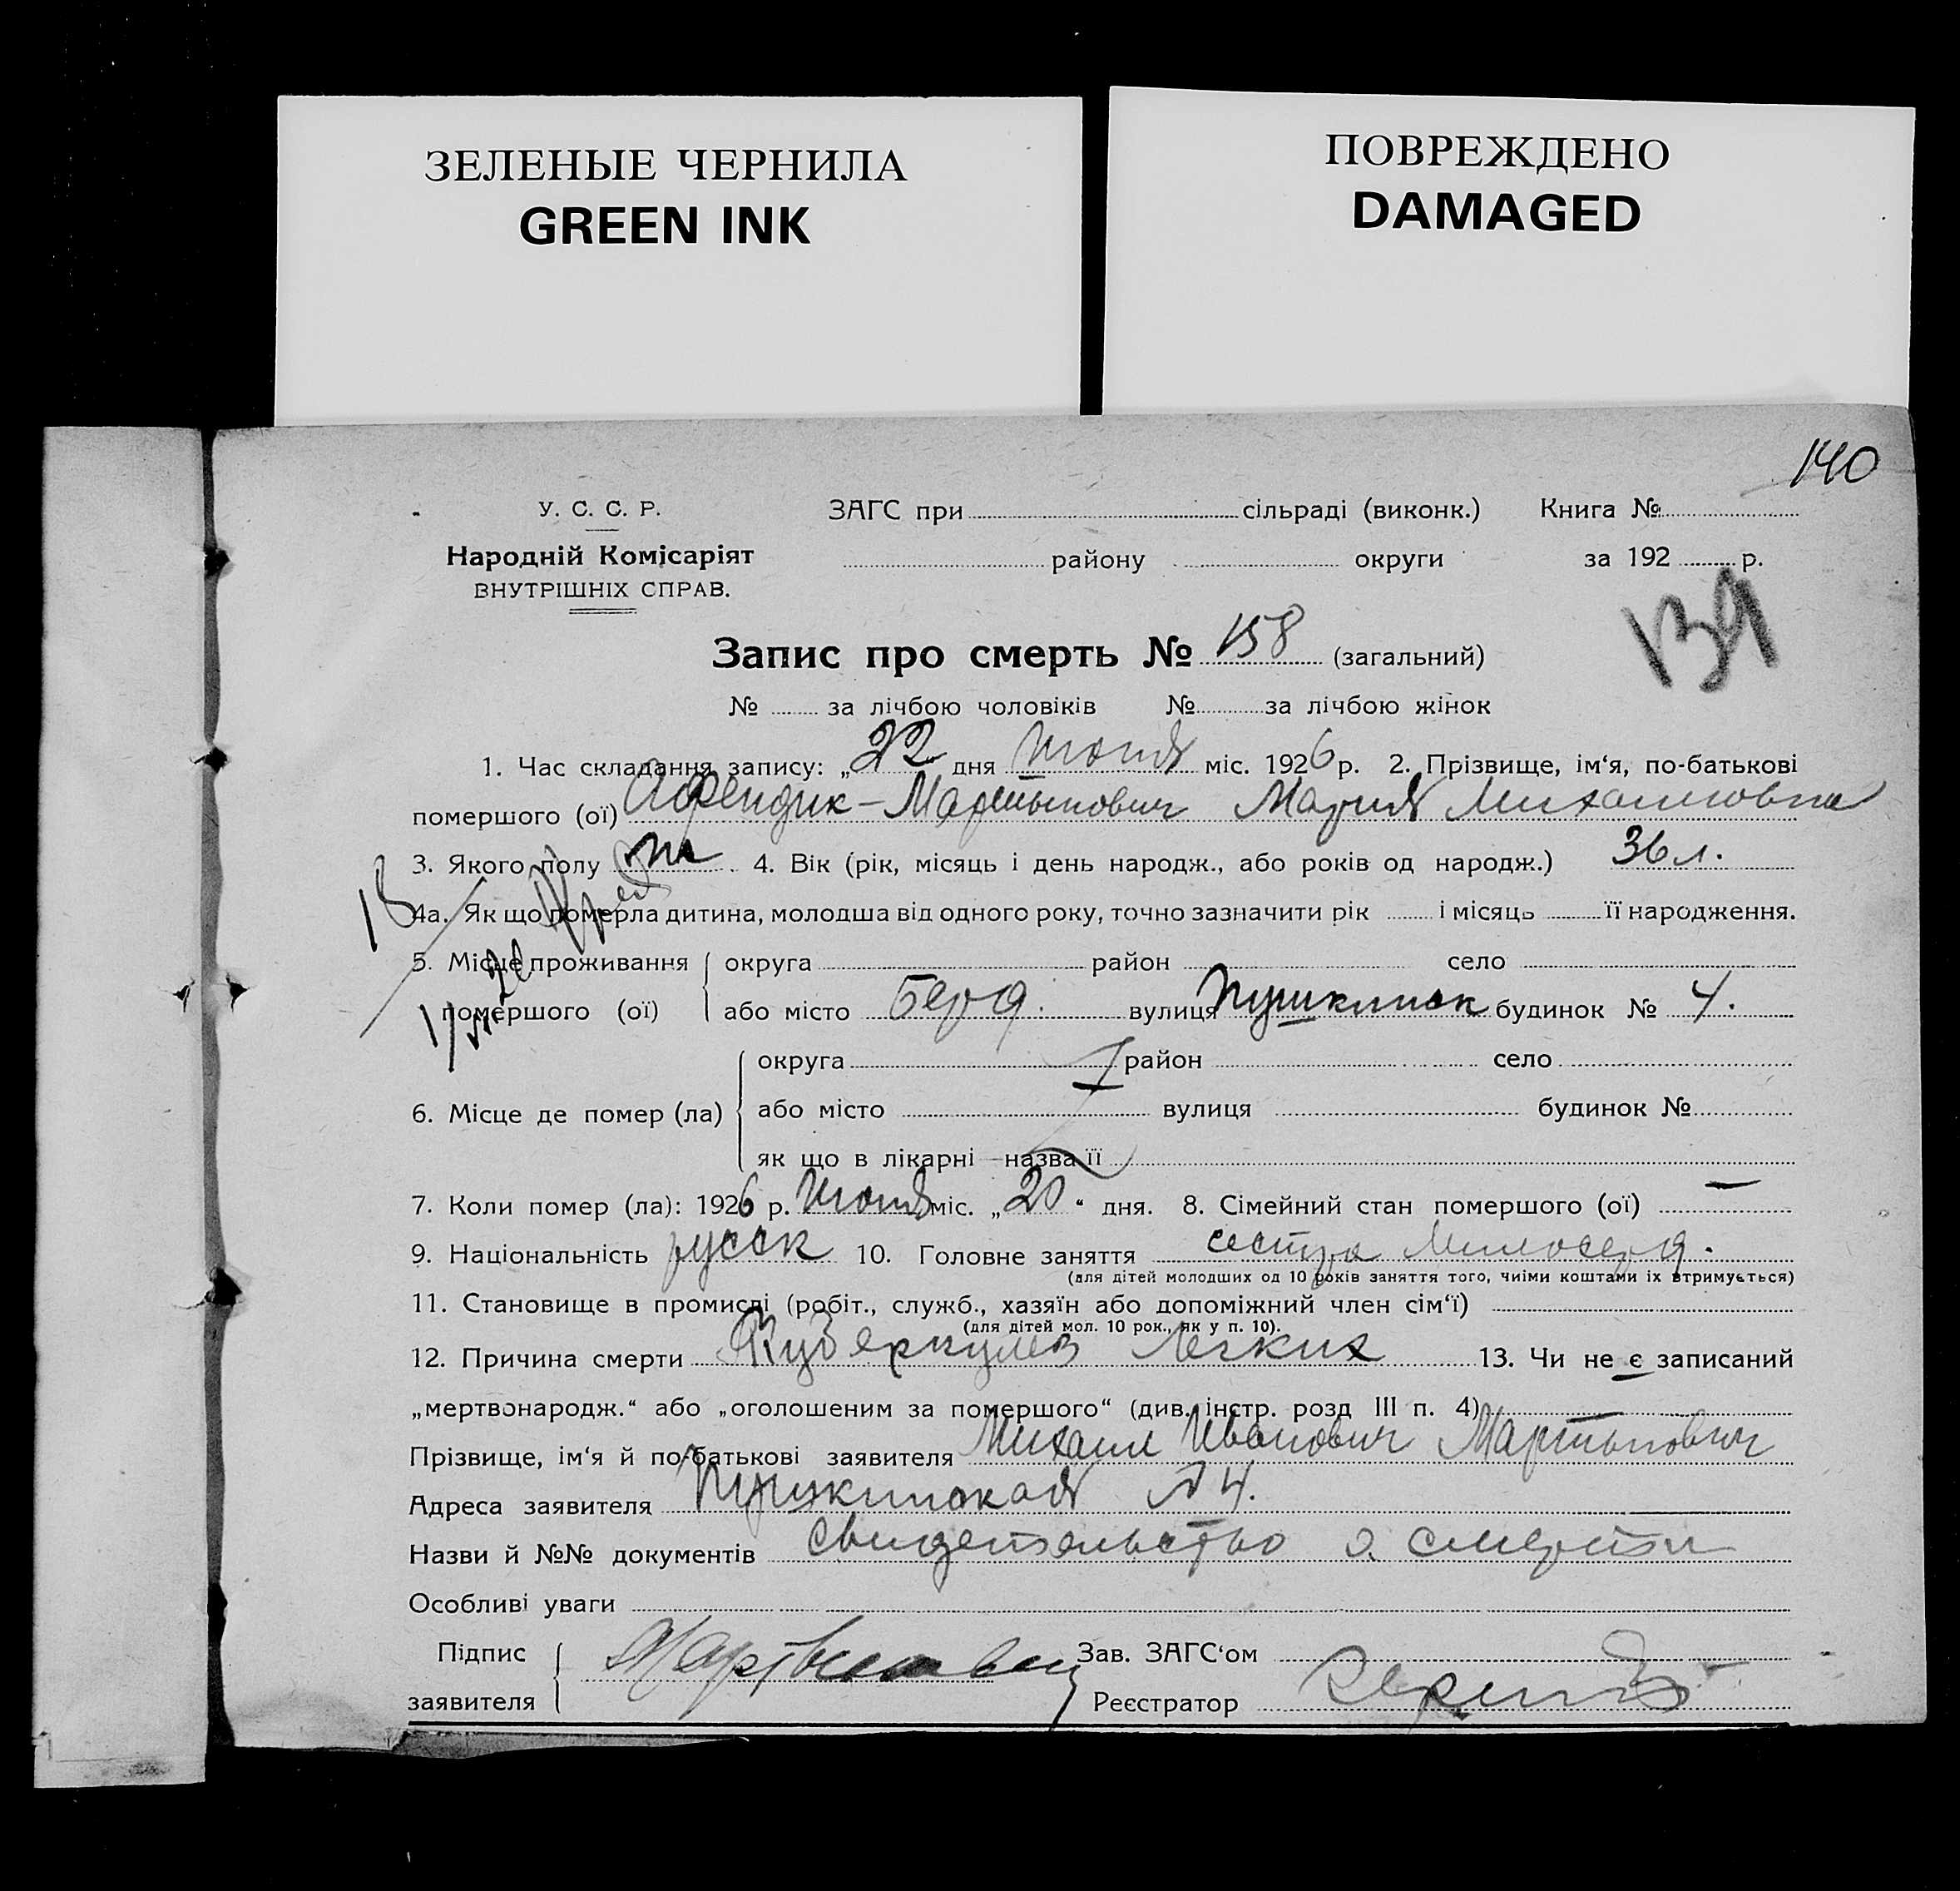 ЗЕЛЕНЫЕ ЧЕРНИЛА
GREEN INK
ПОВРЕЖДЕНО
DAMAGED
140
У. С. С. Р.
Народній Комісаріят
ВНУТРІШНІХ СПРАВ.
ЗАГС при сільраді (виконк.) Книга №
району округи за 192 р.
139
Запис про смерть № 158 (загальний)
№ за лічбою чоловіків № за лічбою жінок
1. Час складання запису: „22 дня Июня міс. 1926 р. 2. Прізвище, ім‘я, по-батькові
помершого (ої) Афендик-Мартынович Мария Михаиловна
3. Якого полу 4. Вік (рік, місяць і день народж., або років од народж.) 36 л.
4а. Як що померла дитина, молодша від одного року, точно зазначити рік і місяць її народження.
18
5. Місце проживання округа район село
помершого (ої) або місто Берд. вулиця Пушкинск будинок № 4.
округа район село
6. Місце де помер (ла) або місто вулиця будинок №
як що в лікарні—назва її
7. Коли помер (ла): 1926 р. Июня міс. „20“ дня. 8. Сімейний стан помершого (ої) —
9. Національність русск 10. Головне заняття сестра милосерд.
(для дітей молодших од 10 років заняття того, чиїми коштами їх втримується)
11. Становище в промислі (робіт., служб., хазяїн або допоміжний член сім‘ї)
(для дітей мол. 10 рок., як у п. 10).
12. Причина смерти Туберкулез легких 13. Чи не є записаний
„мертвонародж.“ або „оголошеним за помершого“ (див. інстр. розд III п. 4)
Прізвище, ім‘я й по-батькові заявителя Михаил Иванович Мартынович
Адреса заявителя Пушкинская № 4.
Назви й №№ документів свидетельство о смерти
Особливі уваги
Підпис заявителя Мартынович
Зав. ЗАГС‘ом
Реєстратор